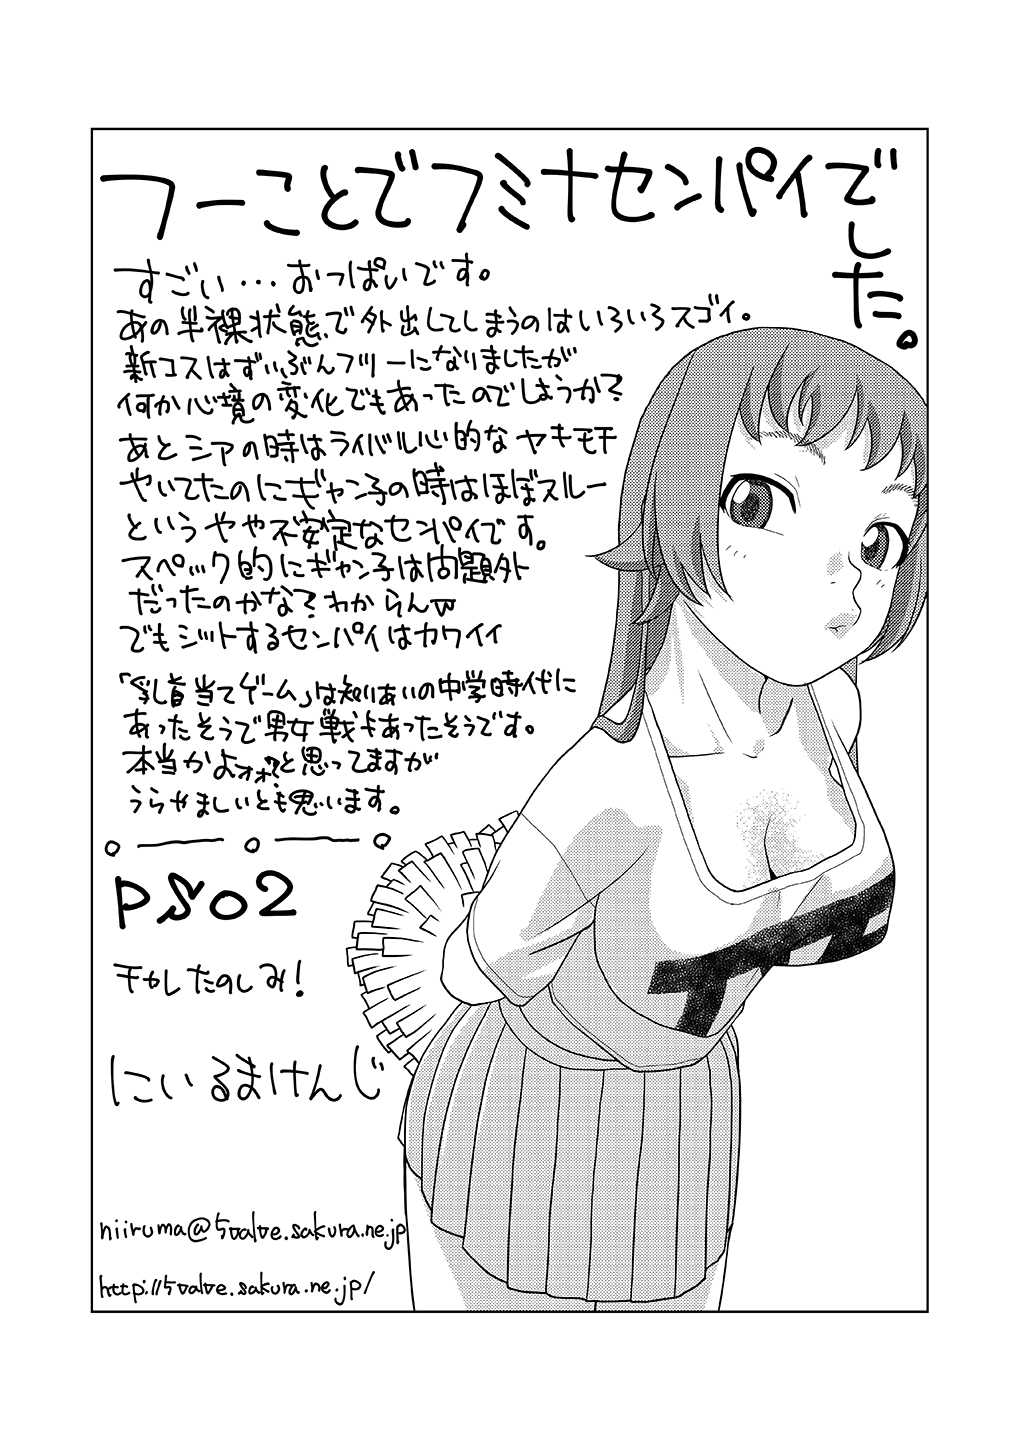 つーことでフミナセンパイでした。
すごい…おっぱいです。
あの半裸状態で外出してしまうのはいろいろスゴイ。
新コスはずいぶんフツーになりましたが
何か心境の変化でもあったのでしょうか?
あとシアの時はライバル心的なヤキモチ
やいてたのにギャン子の時はほぼスルー
というやや不安定なセンパイです。
スペック的にギャン子は問題外
だったのかな?わからんw
でもジットするセンパイはカワイイ
「乳首当てゲーム」は知りあいの中学時代に
あったそうで男女戦もあったそうです。
本当かよォォ?と思ってますが
うらやましいとも思います。
PSO2
チカしたのしみ!
にいるまけんじ
niiruma@5valve.sakura.ne.jp
http://5valve.sakura.ne.jp/